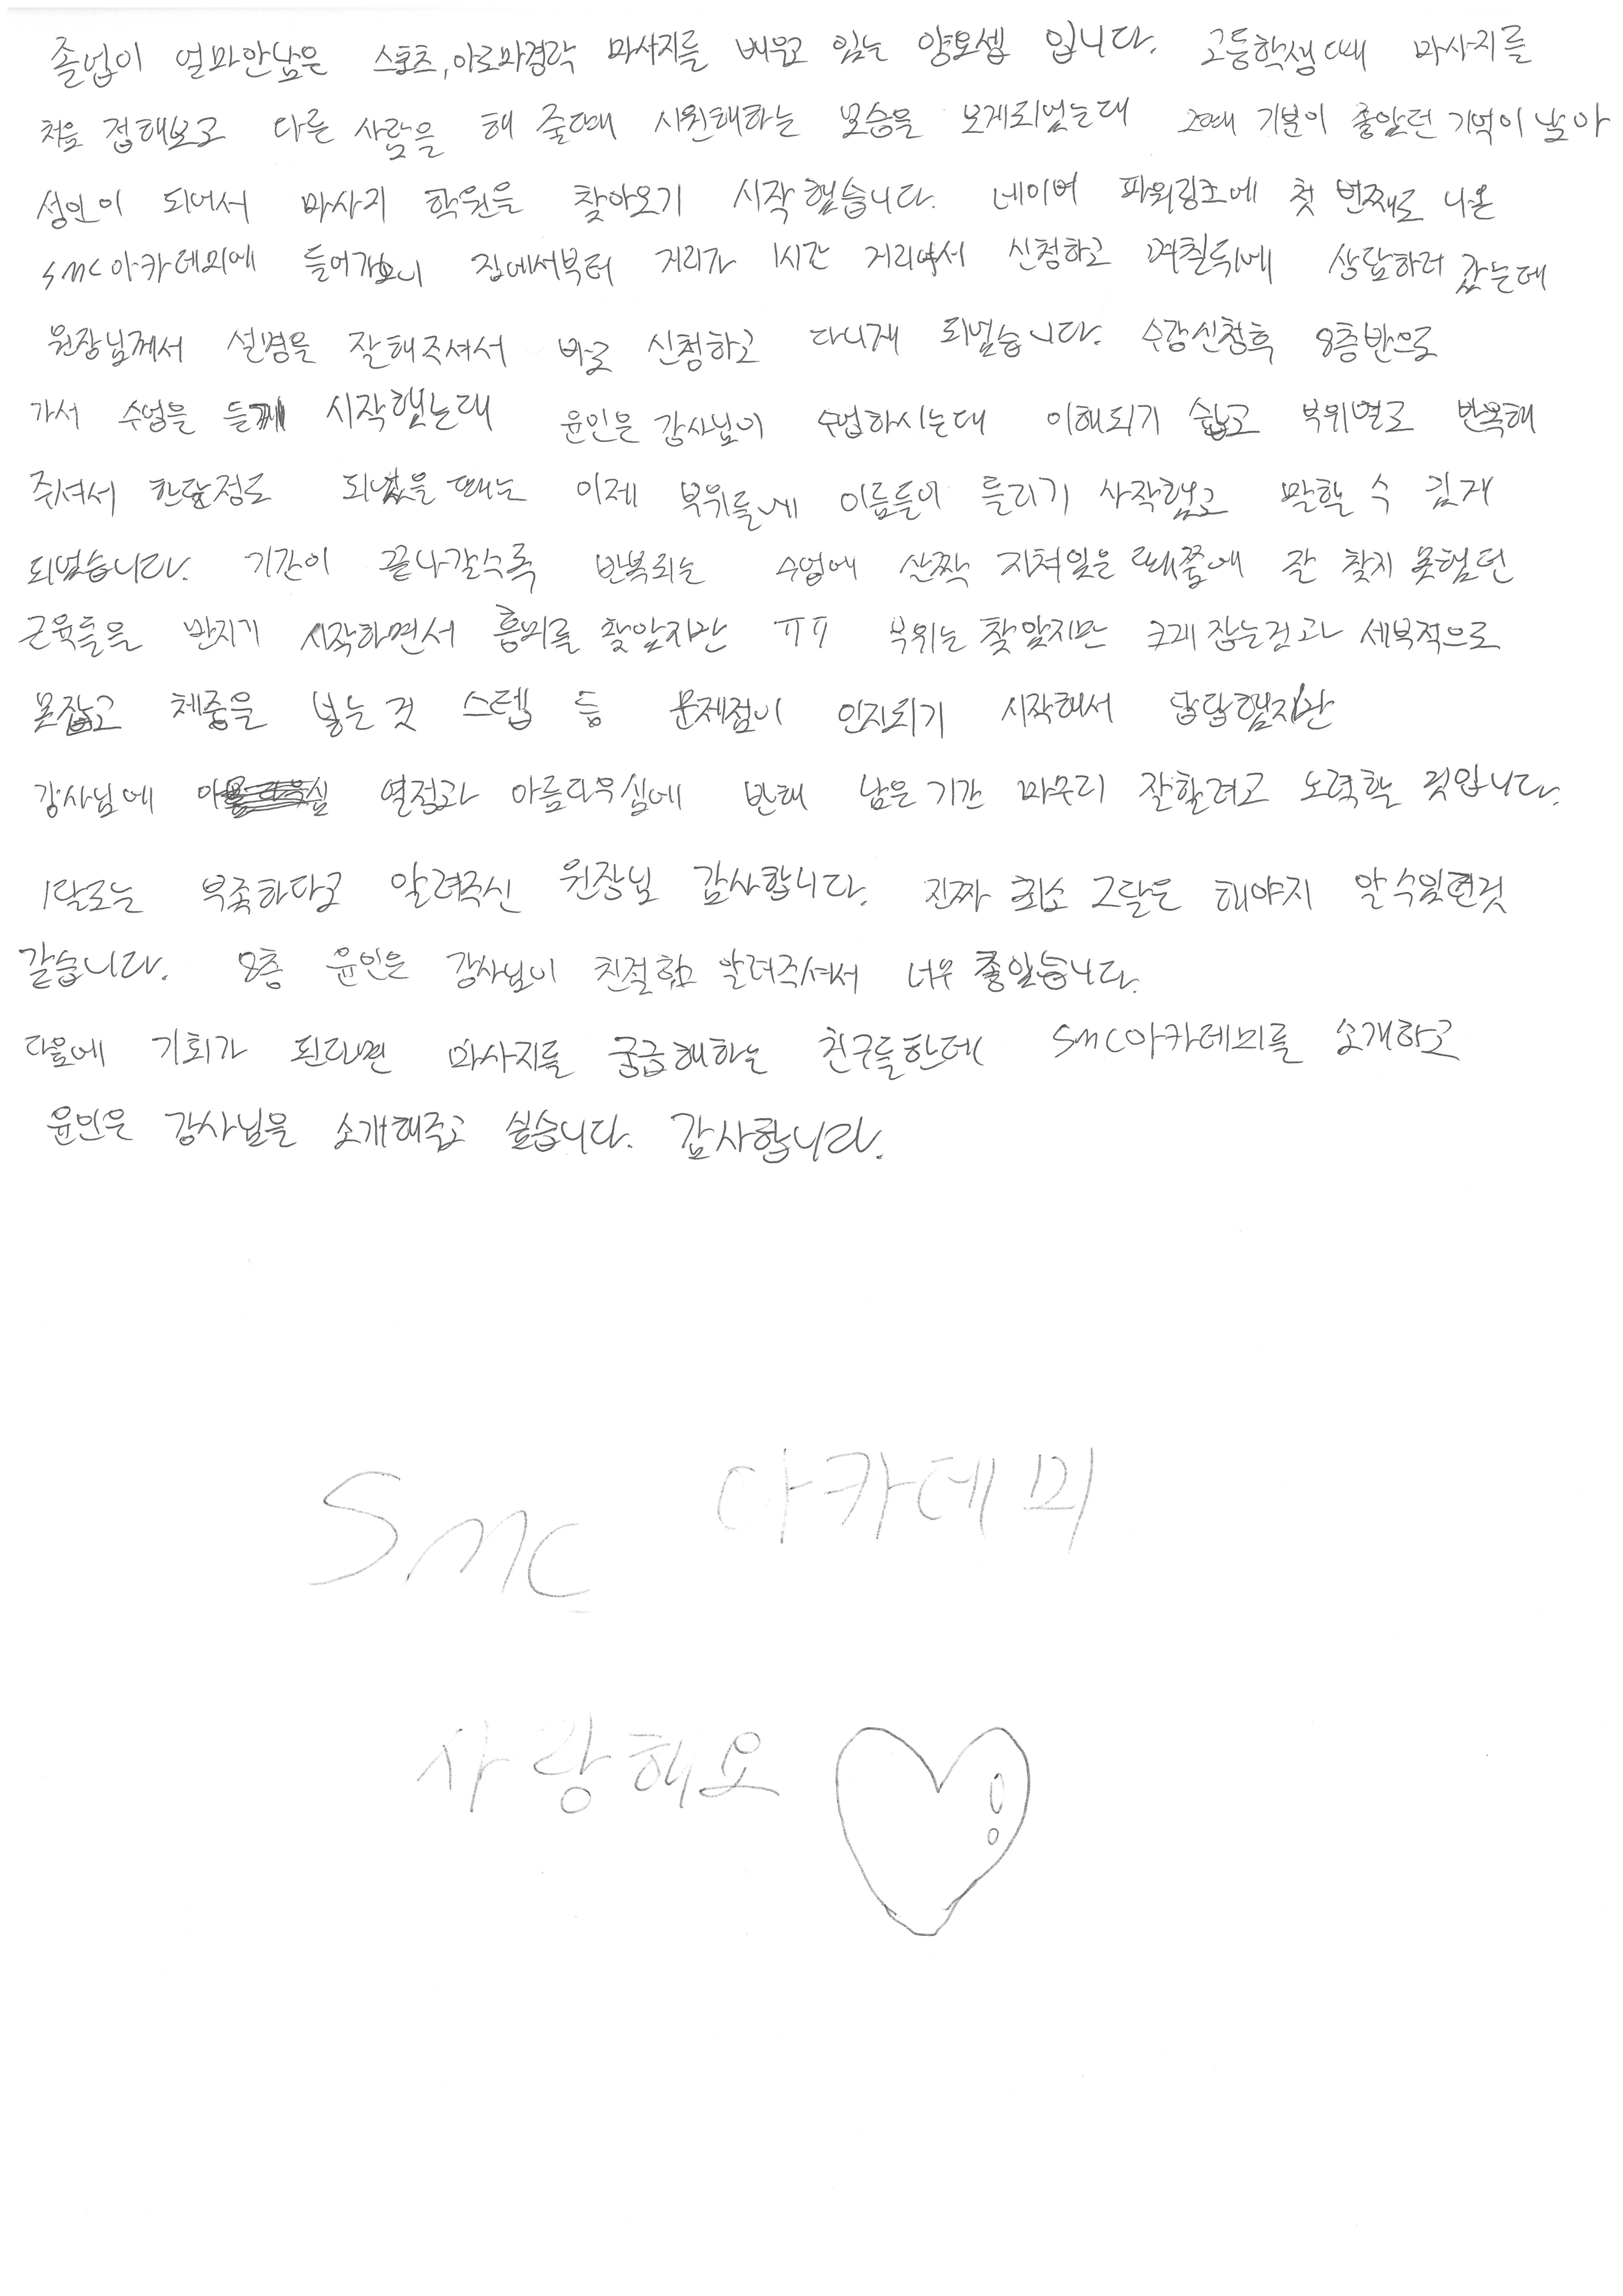 졸업이 얼마안남은 스포츠,아로마경락 마사지를 배우고 있는 양요셉 입니다. 고등학생때 마사지를
처음 접해보고 다른 사람을 해 줄때 시원해하는 모습을 보게되었는대 그때 기분이 좋았던 기억이 남아
성인이 되어서 마사지 학원을 찾아오기 시작했습니다. 네이버 파워링크에 첫 번째로 나온
smc아카데미에 들어가보니 집에서부터 거리가 1시간 거리여서 신청하고 며칠뒤에 상담하러 갔는데
원장님께서 설명을 잘해주셔서 바로 신청하고 다니게 되었습니다. 수강신청후 8층반으로
가서 수업을 듣게 시작했는대 윤인은 강사님이 수업하시는대 이해되기 쉽고 부위별로 반복해
주셔서 한달정도 되었을 때는 이제 부위들에 이름들이 들리기 시작했고 말할 수 있게
되었습니다. 기간이 끝나갈수록 반복되는 수업에 살짝 지쳐있을 때쯤에 잘 찾지 못했던
근육들을 만지기 시작하면서 흥미를 찾았지만 ㅠㅠ 부위는 찾았지만 크게 잡는것과 세부적으로
못잡고 체중을 싣는 것 스텝 등 문제점이 인지되기 시작해서 답답했지만
강사님에 열정과 아름다우심에 반해 남은 기간 마무리 잘할려고 노력할 것입니다.
1달로는 부족하다고 알려주신 원장님 감사합니다. 진짜 최소 2달은 해야지 알수있던것
같습니다. 8층 윤인은 강사님이 친절하고 알려주셔서 너무 좋았습니다.
다음에 기회가 된다면 마사지를 궁금해하는 친구들한테 smc아카데미를 소개하고
윤인은 강사님을 소개해주고 싶습니다. 감사합니다.
Smc 아카데미
사랑해요